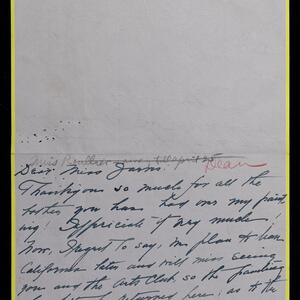 Dean
Dear Miss Jarvis:
Thank you so much for all the
bother you have had over my paint
ing! I appreciate it very much!
Now, I regret to say, we plan to leave
California later and will miss seeing
you and the Arts Club, so the painting
returned here, as the